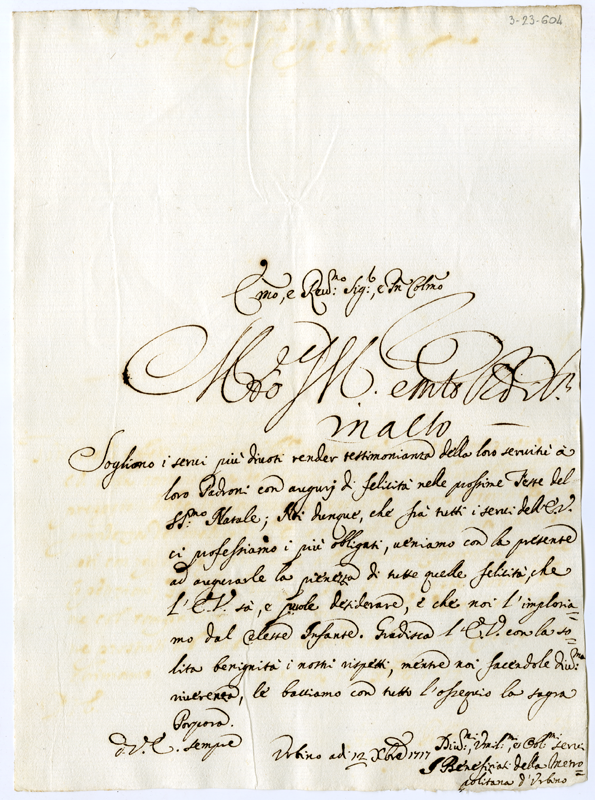 3-23-604
Emo, e Reu.mo Sig.r, e Pn Colmo
in alto
Sogliono i serui più diuoti render testimonianza della loro seruitù à
loro Padroni con augurj di felicità nelle prossime Feste del
SS.mo Natale; Noi dunque, che frà tutti i serui dell'E.V.
ci professiamo i più obligati, ueniamo con la presente
ad augurarle la pienezza di tutte quelle felicità, che
l'E.V. sà, e puole desiderare, e che noi l'imploria=
mo dal Celeste Infante. Gradisca l'E.V. con la so=
lita benignità i nostri rispetti, mentre noi facendole diu.ma
riuerenza, le bacciamo con tutto l'ossequio la sagra
Porpora.
d.V.E. sempre
Urbino adi 12 Xbre 1717
Diu.mi, Um.li.mi, e Obl.mi serui
I Beneficiati della Metro=
politana d'Urbino